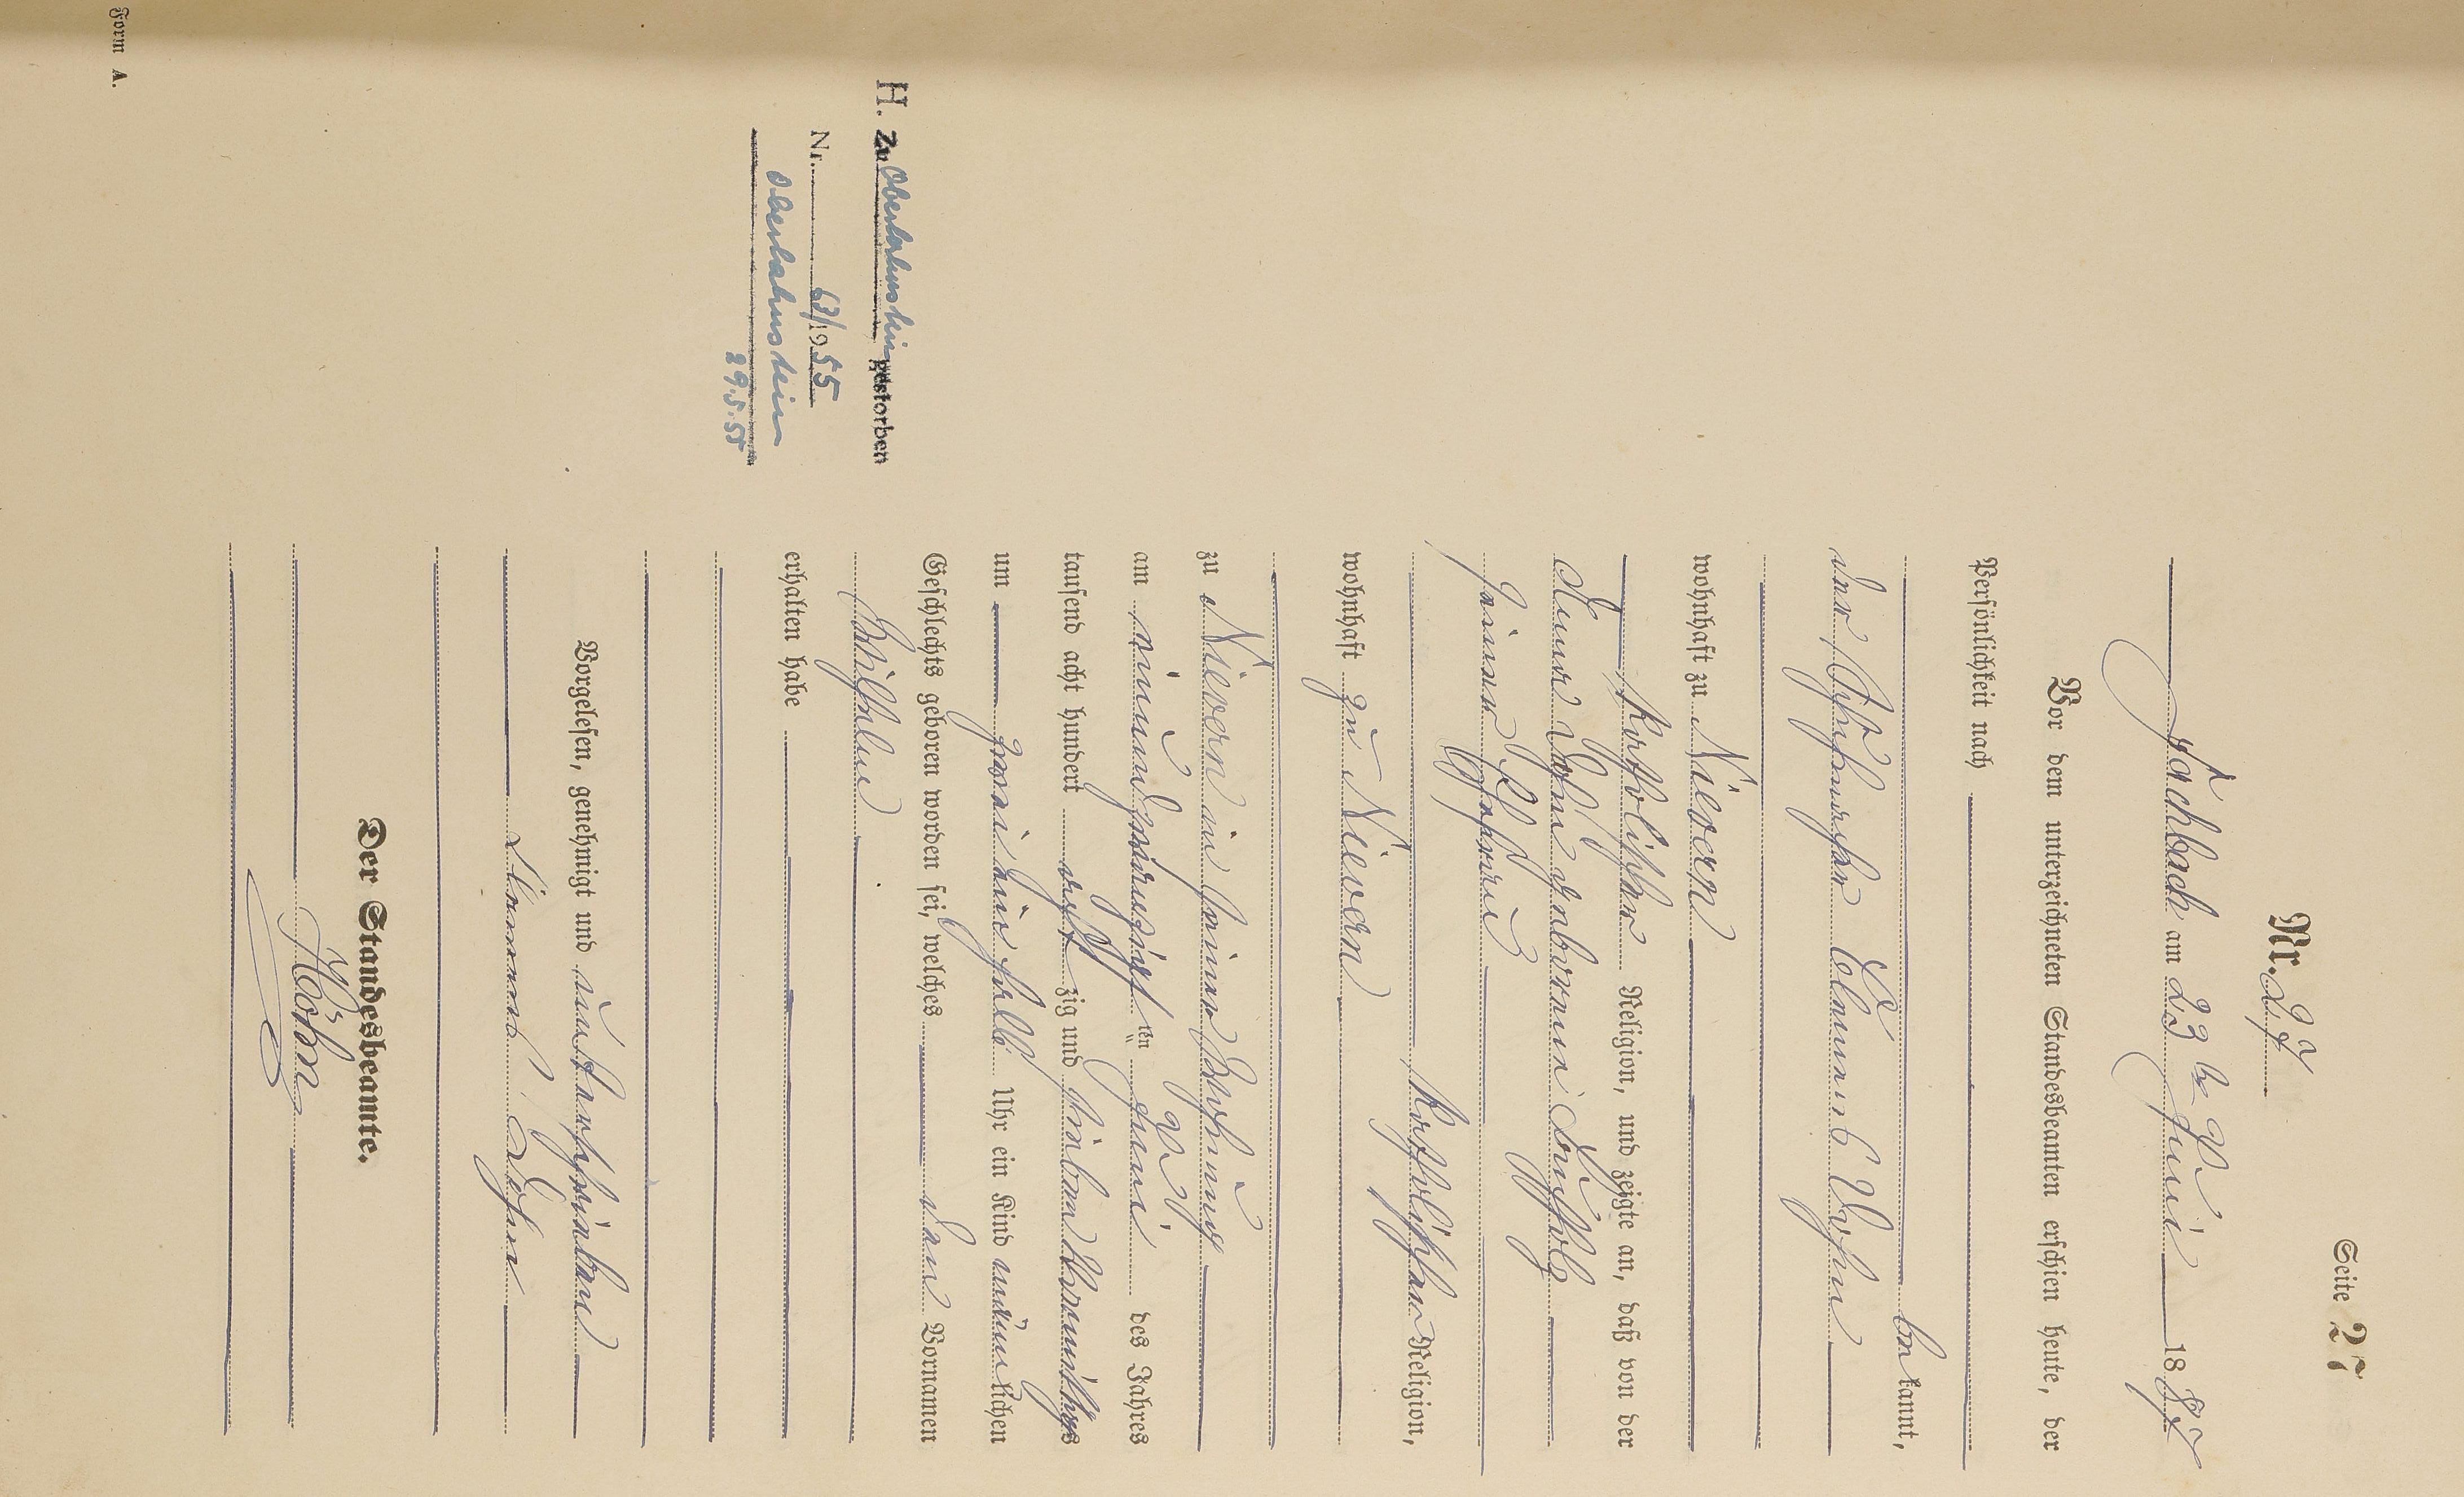 Seite 27
Nr. 27
Fachbach am 23ten Juni 1887
Vor dem unterzeichneten Standesbeamten erschien heute, der
Persönlichkeit nach
bekannt,
der
wohnhaft zu Nievern
katholischer Religion, und zeigte an, daß von der
geborene
seiner Ehefrau
katholischer Religion,
wohnhaft zu Nievern
zu Nievern in seiner Wohnung
am einundzwanzigsten Juni des Jahres
tausend acht hundert achtzig und sieben Vormittags
um Uhr ein Kind männlichen
Geschlechts geboren worden sei, welches den Vornamen
Wilhelm
erhalten habe
Vorgelesen, genehmigt und unterschrieben
Der Standesbeamte.
H. Zu Oberlahnstein gestorben
Nr. 63/1955
Oberlahnstein
29.5.55
Form A.